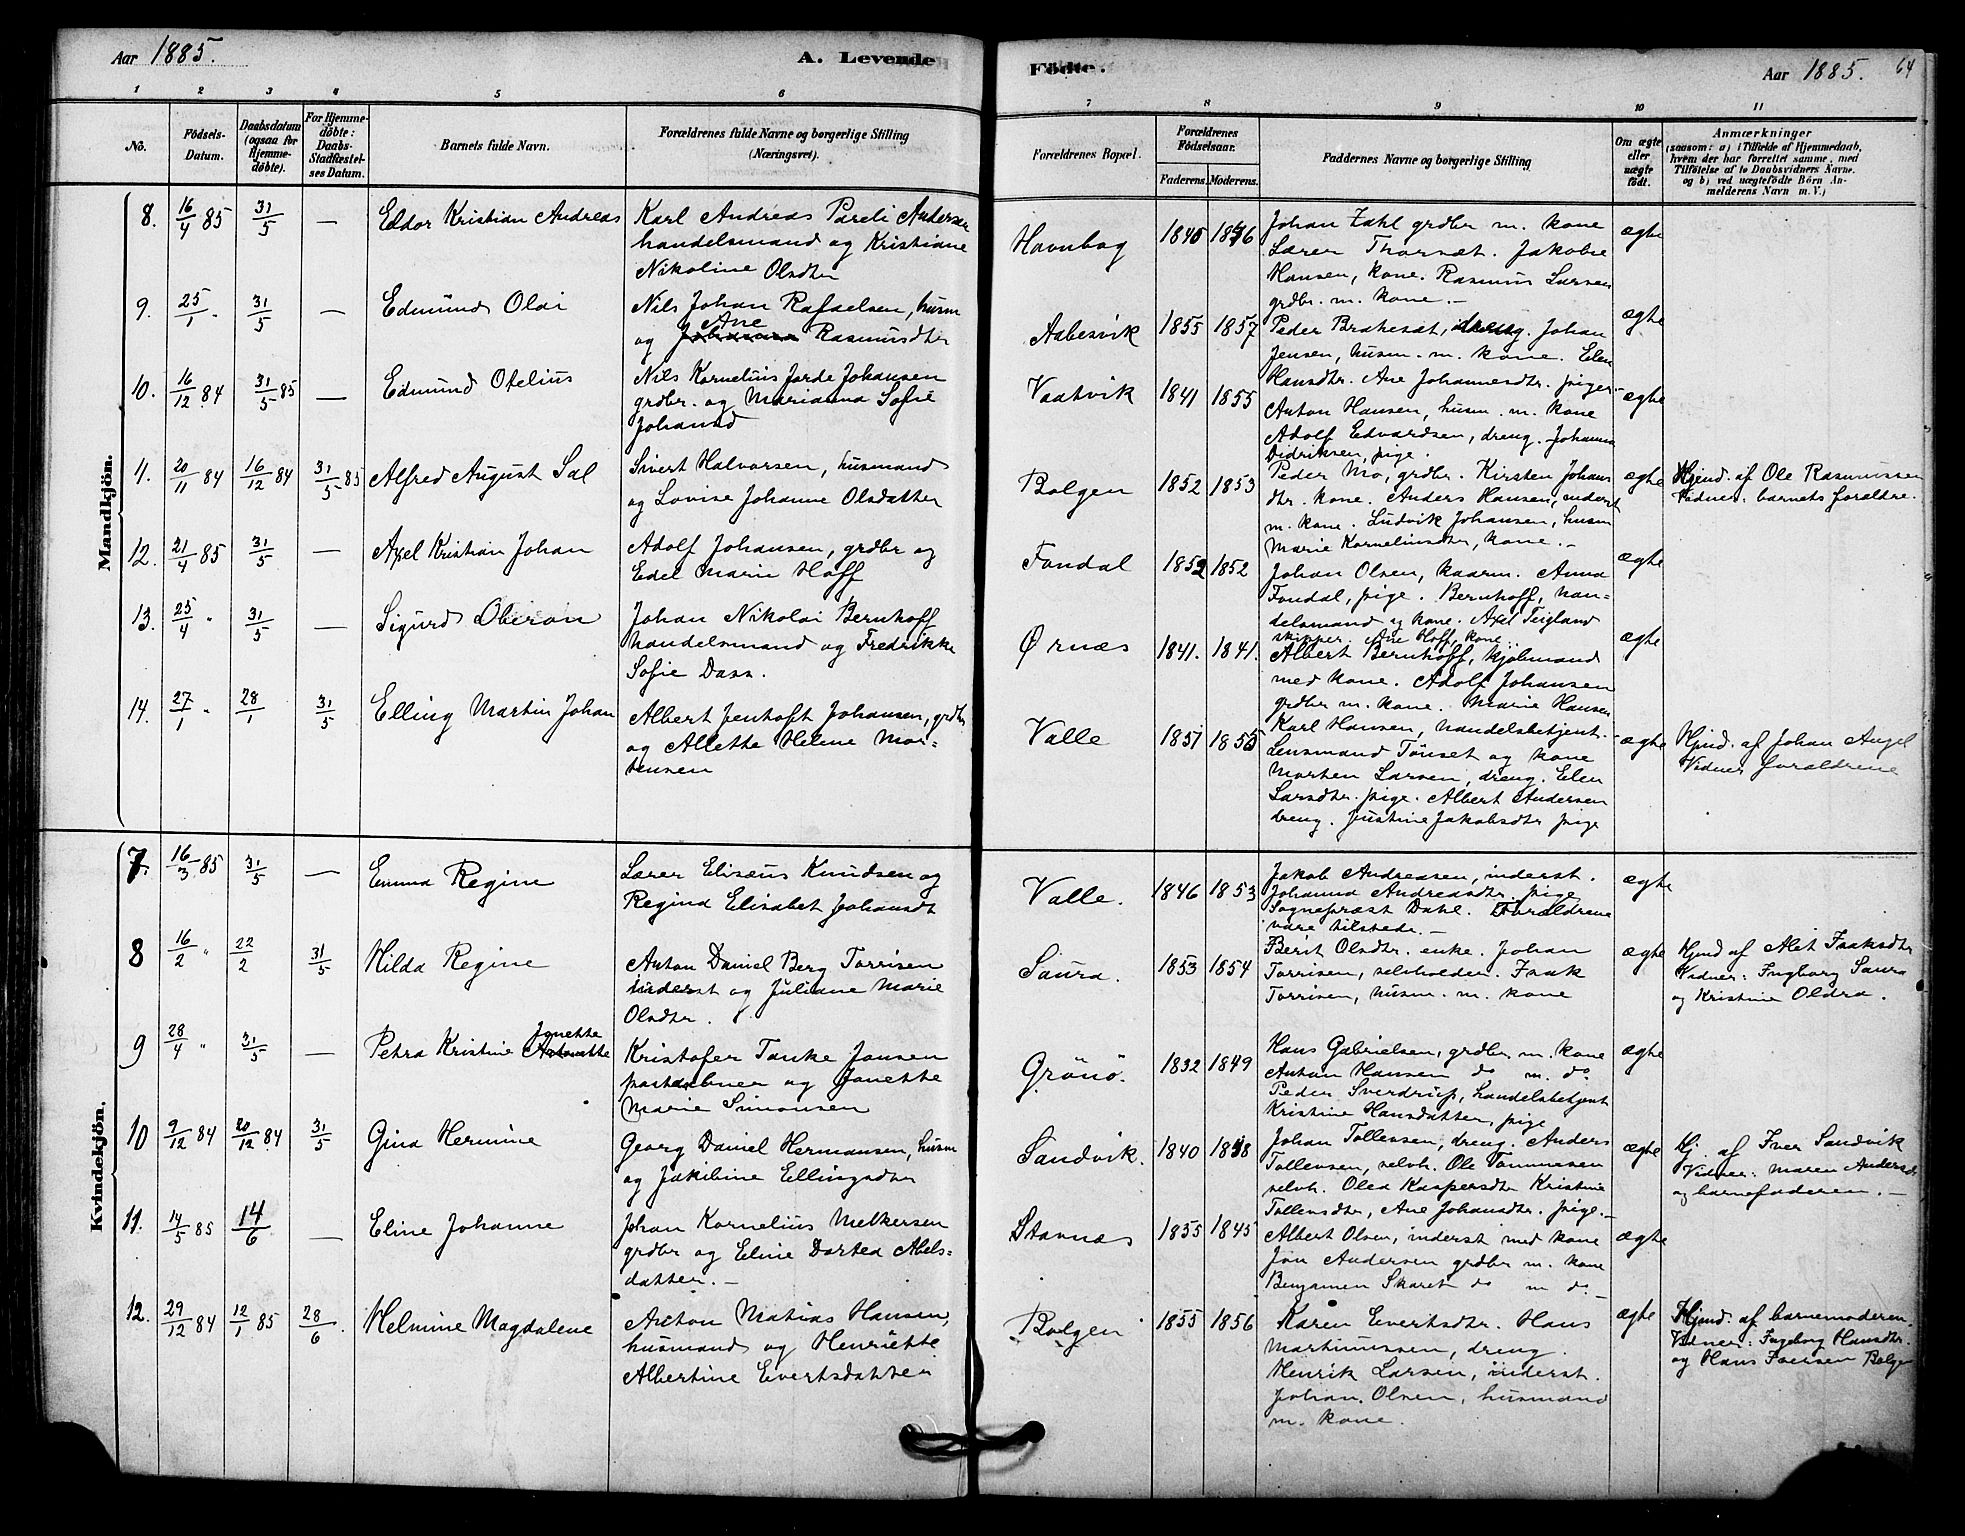 Aar 1885.
A. Levende
1 2 3 4 5 6
No.
Födsels-Datum.
Daabsdatum (ogsaa for Hjemme-døbte).
For Hjemme-døbte: Daabs-Stadfæstel-ses Datum.
Barnets fulde Navn.
Forældrenes fulde Navne og borgerlige Stilling
(Næringsvei).
Mandkjön.
8. 16/4 85 31/5 — Eldor Kristian Andreas
Karl Andreas Pareli Andersen
handelsmand og Kristiane
Nikoline Olsdtr
9. 25/1 " 31/5 — Edmund Olai
Nils Johan Rafaelsen, husm
og Ane Rasmusdtr
10. 16/12 84 31/5 85 — Edmund Otelius
Nils Kornelius Jorde Johansen
grdbr. og Marianna Sofie
Johansd
11. 20/11 84 16/12 84 31/5 85 Alfred August Sal
Sivert Halvorsen, husmand
og Lovise Johanne Olsdatter
12. 21/4 85 31/5 — Axel Kristian Johan
Adolf Johansen, grdbr og
Edel Marie Hoff
13. 25/4 " 31/5 — Sigurd Oberon
Johan Nikolai Bernhoff
handelsmand og Fredrikke
Sofie Dass.
14. 27/1 " 28/1 31/5 Elling Martin Johan
Albert Jentoft Johansen, grdbr
og Allette Helene Mor=
tensen
Kvindekjön.
7. 16/3 85 31/5 — Emma Regine
Lærer Elisæus Knudsen og
Regina Elisabet Johansdt
8 16/2 " 22/2 31/5 Hilda Regine
Anton Daniel Berg Torrisen
inderst og Juliane Marie
Olsdtr.
9 28/4 " 31/5 — Petra Kristine Jonette
Kristofer Tanke Jonsen
postaabner og Jonette
Marie Simonsen
10 9/12 84 20/12 84 31/5 Gina Hermine
Georg Daniel Hermansen, husm
og Jakibine Ellingsdtr
11. 14/5 85 14/6 — Eline Johanne
Johan Kornelius Melkersen
grdbr og Eline Dortea Abels=
datter. —
12. 29/12 84 12/1 85 28/6. Helmine Magdalene
Anton Matias Hansen,
husmand og Henriette
Albertine Evertsdatter
Födte.
Aar 1885. 64
7 8 9 10 11
Forældrenes Bopæl.
Forældrenes Födselsaar.
Faderens. Moderens.
Faddernes Navne og borgerlige Stilling
Om ægte eller uægte födt.
Anmærkninger
(saasom: a) i Tilfælde af Hjemmedaab,
hvem der har forrettet samme, med
Tilföielse af to Daabsvidners Navne,
og b) ved uægtefödte Börn An-
melderens Navn m. V.)
Havnbog 1840 1846 ægte
Johan Zahl grdbr m. kone
Lærer Thorsæt. Jakobie
Hansen, kone. Rasmus Larsen
grdbr. m. kone. —
Aabesvik 1855 1857 ægte
Peder Brakesæt, dreng. Johan
Jensen, husm. m. kone. Elen
Hansdtr. Ane Johannesdtr. piger
Vaatvik 1841 1855 ægte
Anton Hansen, husm. m. kone
Adolf Edvardsen, dreng. Johanna
Didriksen, pige.
Bolgen 1852 1853 ægte
Peder Mo, grdbr. Kirsten Johans
dtr. kone. Anders Hansen, inderst
m. kone. Ludvik Johansen, husm
Marie Korneliusdtr, kone. —
Hjmd. af Ole Rasmussen
Vidner: barnets forældre.
Fondal 1852 1852 ægte
Johan Olsen, kaarm. Anna
Fondal, pige. Bernhoff, han=
delsmand og kone. Axel Teigland
skipper. Ane Hoff, kone.
Ørnæs 1841. 1841. ægte
Albert Bernhoff, kjøbmand
med kone. Adolf Johansen
grdbr m. kone. Marie Hansen
Karl Hansen, handelsbetjent.
Valle 1851 1855 ægte
Lensmand Tönset og kone
Morten Larsen, dreng. Elen
Larsdtr. pige. Albert Andersen
dreng. Justine Jakobsdtr pige
Hjmd. af Johan Angel
Vidner forældrene
Valle. 1846 1853 ægte
Jakob Andreasen, inderst.
Johanna Andreasdtr. pige
Sognepræst Dahl. Forældrene
vare tilstede. —
Saura. 1853 1854 ægte
Berit Olsdtr. enke. Johan
Torrisen, selveier. Isak
Torrisen, husm. m. kone
Hjmd af Alet Isaksdtr
Vidner: Ingborg Saura
og Kristine Oldra.
Grönö. 1832 1849 ægte
Hans Gabrielsen, grdbr m. kone
Anton Hansen do m. do
Peder Sverdrup, handelsbetjent
Kristine Hansdatter, pige
Sandvik. 1840 1848 ægte
Johan Tollevsen, dreng. Anders
Tollevsen, selvh. Ole Tommesen
selvh. Olea Kaspersdtr Kristine
Tollevsdtr, Ane Johansdtr. pige. —
Hj. af Iver Sandvik
Vidner: Maren Andersd
og barnefaderen. —
Stavnæs 1855 1845 ægte
Albert Olsen, inderst med kone
Jon Andersen grdbr m. kone
Benjamen Skaret do m do —
Bolgen 1855 1856 ægte
Karen Evertsdtr. Hans
Martinussen, dreng.
Henrik Larsen, inderst.
Johan Olsen, husmand
m. kone.
Hjmd. af barnemoderen.
Vidner: Ingeborg Hansdtr.
og Hans Iversen Bolgen